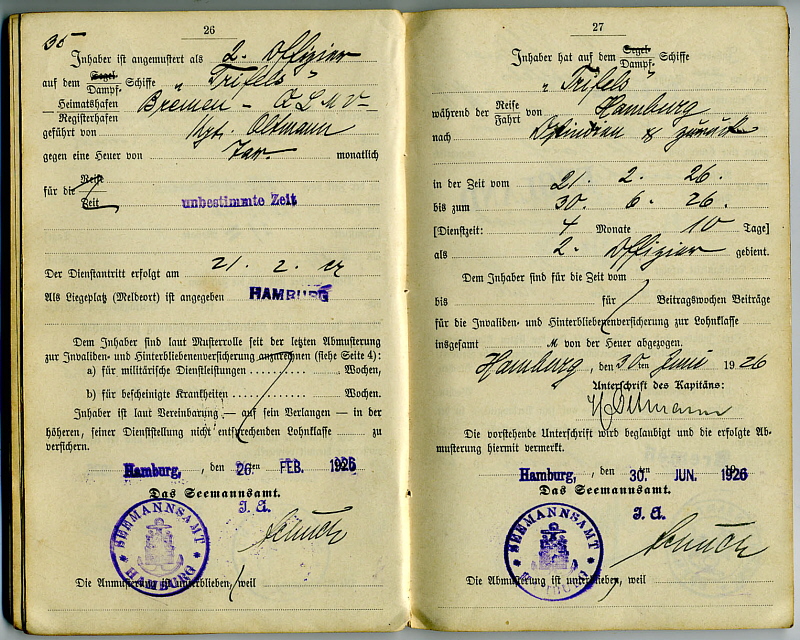 26
35
Inhaber ist angemustert als 2. Offizier
auf dem Segel- Dampf- Schiffe „Trifels“
Heimatshafen Bremen -
Registerhafen
geführt von Kpt. Oltmann
gegen eine Heuer von Tar. monatlich
für die Reise
Zeit unbestimmte Zeit
Der Dienstantritt erfolgt am 21. 2.
Als Liegeplatz (Meldeort) ist angegeben HAMBURG
Dem Inhaber sind laut Musterrolle seit der letzten Abmusterung
zur Invaliden- und Hinterbliebenenversicherung anzurechnen (siehe Seite 4):
a) für militärische Dienstleistungen .......... Wochen,
b) für bescheinigte Krankheiten .......... Wochen.
Inhaber ist laut Vereinbarung — auf sein Verlangen — in der
höheren, seiner Dienststellung nicht entsprechenden Lohnklasse zu
versichern.
Hamburg, den 26ten FEB. 1926
Das Seemannsamt.
I. A.
SEEMANNSAMT HAMBURG
Die Anmusterung ist unterblieben, weil
27
Inhaber hat auf dem Segel- Dampf- Schiffe
„Trifels“
während der Reise Fahrt von Hamburg
nach Ostindien & zurück
in der Zeit vom 21. 2. 26.
bis zum 30. 6. 26.
[Dienstzeit: 4 Monate 10 Tage]
als 2. Offizier gedient.
Dem Inhaber sind für die Zeit vom
bis für Beitragswochen Beiträge
für die Invaliden- und Hinterbliebenenversicherung zur Lohnklasse
insgesamt M von der Heuer abgezogen.
Hamburg, den 30ten Juni 1926
Unterschrift des Kapitäns:
Oltmann
Die vorstehende Unterschrift wird beglaubigt und die erfolgte Ab-
musterung hiermit vermerkt.
Hamburg, den 30.ten JUN. 1926
Das Seemannsamt.
I. A.
SEEMANNSAMT HAMBURG
Die Abmusterung ist unterblieben, weil